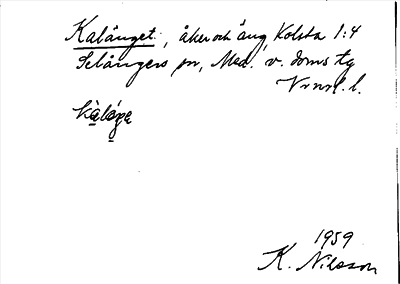 Kalånget, åker och äng, Kolsta 1:4
Selångers sn, Med. v. doms tg
Vrnl. l.
kàláŋe
1959
K. Nilsson